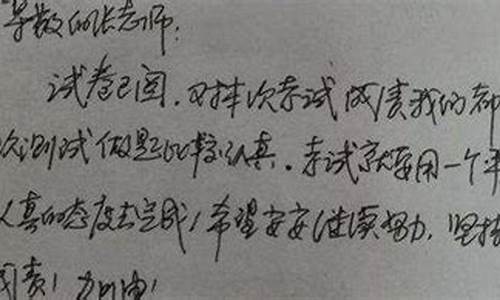 尊敬的张老师:
试卷已阅,对本次考试成绩我们都
次测试做题比较认真。考试就要用一个平
认真的态度去完成!希望安安继续努力,坚持
成绩!加油!